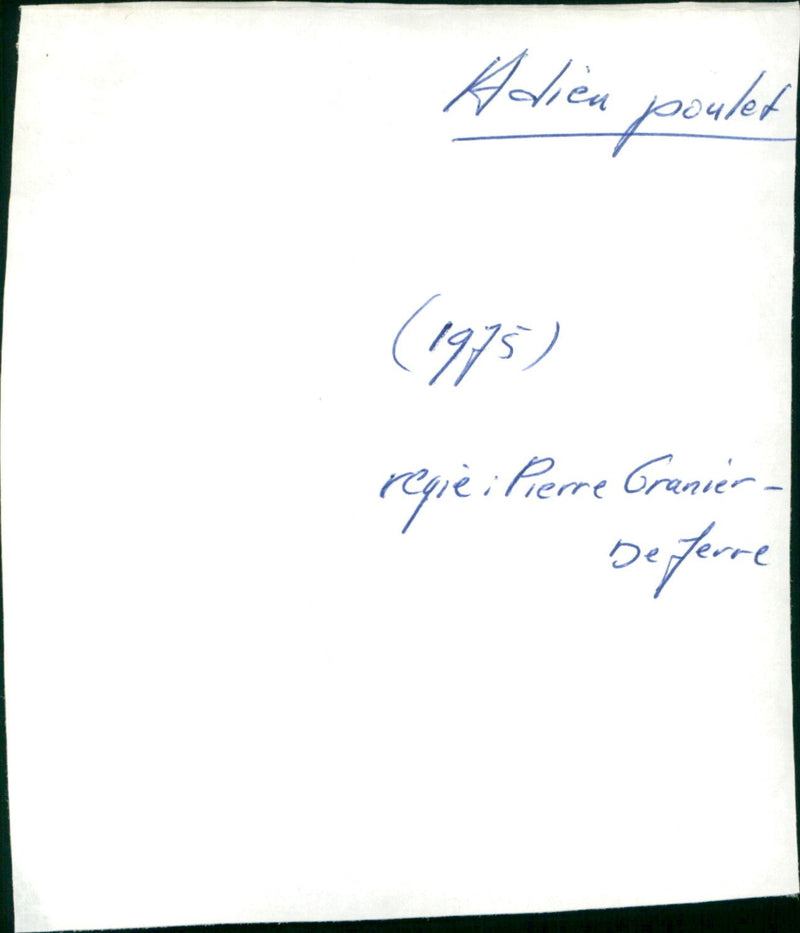 Adieu poulet
(1975)
regie: Pierre Granier-
Deferre